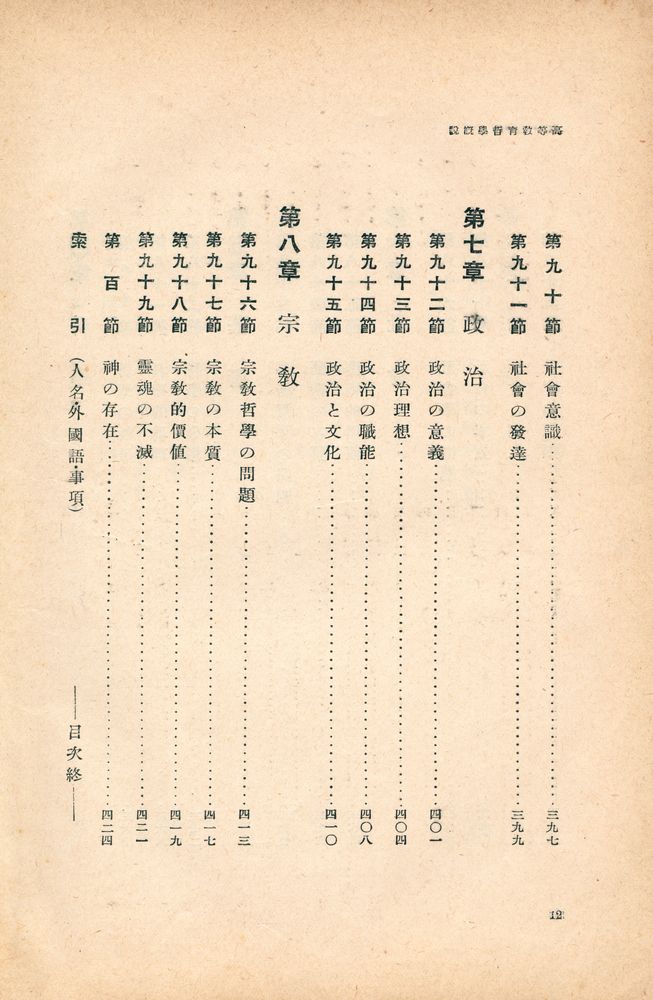 高等教育哲學汎說
第九十節 社會意識 三九七
第九十一節 社會の發達 三九九
第七章 政治
第九十二節 政治の意義 四〇一
第九十三節 政治理想 四〇四
第九十四節 政治の職能 四〇八
第九十五節 政治と文化 四一〇
第八章 宗敎
第九十六節 宗敎哲學の問題 四一三
第九十七節 宗敎の本質 四一七
第九十八節 宗敎的價値 四一九
第九十九節 靈魂の不滅 四二一
第百節 神の存在 四二四
索引 (人名・外國語・事項)
――目次終――
12